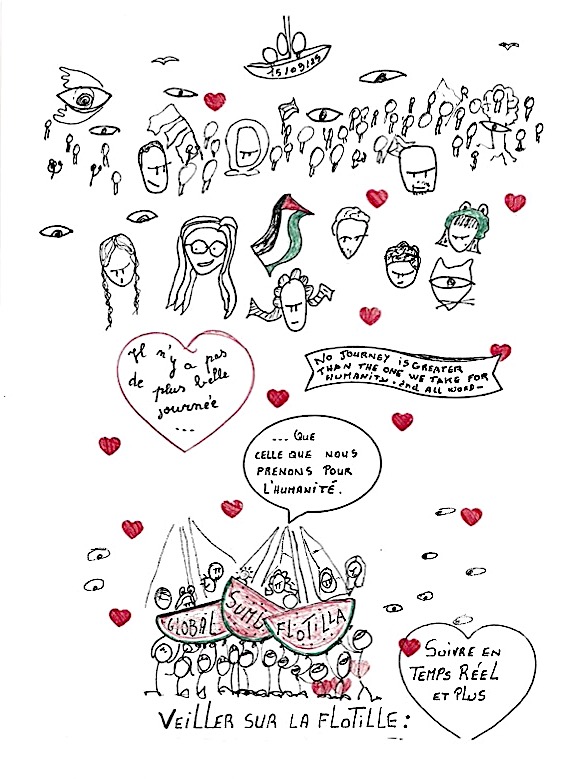 15/09/25
Il n'y a pas
de plus belle
journée
...
NO JOURNEY IS GREATER
THAN THE ONE WE TAKE FOR
HUMANITY. and ALL WORD-
... QUE
CELLE QUE NOUS
PRENONS POUR
L'HUMANITÉ.
GLOBAL
SUMUD
FLOTILLA
SUIVRE EN
TEMPS RÉEL
ET PLUS
VEILLER SUR LA FLOTILLE :